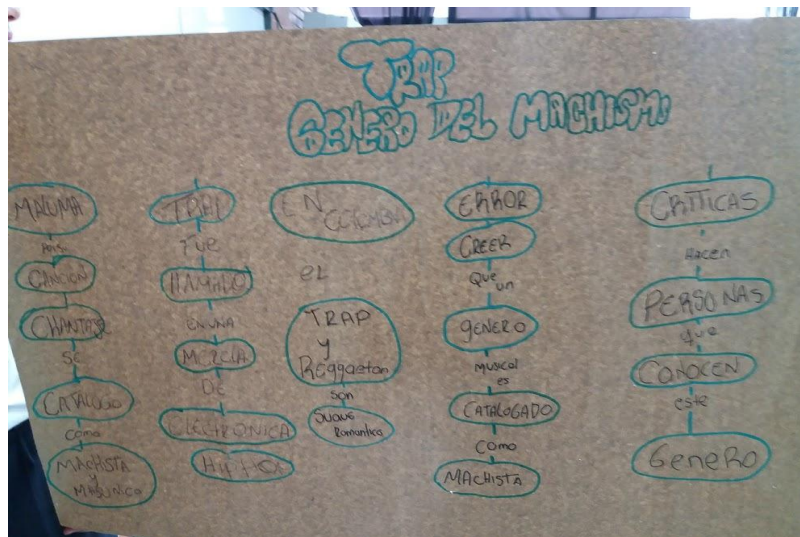 TRAP
GENERO DEL MACHISMO
MALUMA
CANCION
CHANTAJE
SE
CATALOGO
como
MACHISTA
y
TRAP
Fue
LLAMADO
EN UNA
MEZCLA
DE
ELECTRONICA
HIPHOP
EN
EL
TRAP
y
Reggaeton
son
SUAVE
Romantico
ERROR
CREER
Que
un
GENERO
MUSICAL
es
CATALOGADO
COMO
MACHISTA
CRITICAS
HACEN
PERSONAS
que
CONOCEN
este
Genero